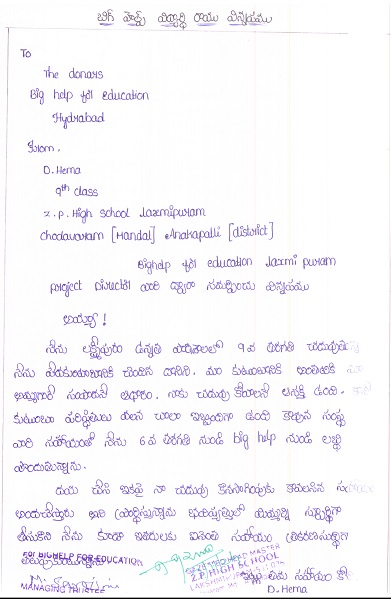 బిగ్ హెల్ప్ విద్యార్థి రాయు విన్నపము
To
The donars
Big help for education
Hydrabad
From.
D. Hema
9th class
Z.P. High school laxmipuram
chodavaram [Mandal] Anakapalli [district]
Bighelp for education laxmi puram
project Director వారి ద్వారా సమర్పించు విన్నపము
అయ్యా !
నేను లక్ష్మీపురం ఉన్నత పాఠశాలలో 9వ తరగతి చదువుతున్న
నేను పేదకుటుంబానికి చెందిన దానిని. మా కుటుంబానికి
సంపాదనే ఆధారం. నాకు చదువు కోవాలనే ఆసక్తి ఉంది.
కుటుంబ పరిస్థితులు వలన చాలా ఇబ్బందిగా ఉంది కావున సంస్థ
వారి సహాయంతో నేను 6వ తరగతి నుండి big help నుండి లబ్ధి
పొందుతున్నాను.
దయ చేసి ఇకపై నా చదువు కొనసాగింపుకు కావలసిన
అందచేస్తారు అని ప్రార్థిస్తున్నాను భవిష్యత్తులో మిమ్మల్ని స్ఫూర్తిగా
తీసుకొని నేను కూడా ఇతరులకు సహాయం
FOR BIGHELP FOR EDUCATION
MANAGING TRUSTEE
HEAD MASTER
Z.P.HIGH SCHOOL
ఇట్లు తమ సహాయం
D. Hema